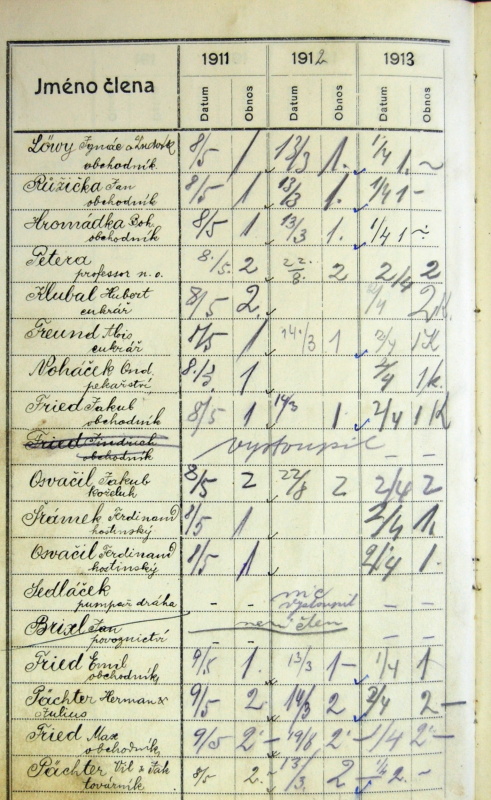 Jméno člena 1911 1912 1913
Datum Obnos Datum Obnos Datum Obnos
Löwy Ignác a Ludvík 8/5 1 13/3 1. 1/4 1. ~
obchodník
Růžička Jan 8/5 1 13/3 1. 1/4 1 -
obchodník
Hromádka Boh. 8/5 1 13/3 1. 1/4 1 ~
obchodník
Petera 8./5. 2 22./8. 2 2/4 2
professor n. o.
Klubal Hubert 8/5 2. 2/4 2 K.
cukrář
Freund Alois 8/5 1 14./3 1 2/4 1 K
cukrář
Noháček Ond. 8./5 1 2/4 1 k.
pekařství
Fried Jakub 8/5 1 14/3 1. 2/4 1 K
obchodník
Fried Jindřich vystoupil - -
obchodník
Osvačil Jakub 8/5 2 22/8 2 2/4 2
koželuh
Šrámek Ferdinand 8/5 1 2/4 1.
hostinský
Osvačil Ferdinand 8/5 1 2/4 1.
hostinský
Sedláček - - nic - -
pumpař dráha vystoupil
Brixl Jan není člen - -
povoznictví
Fried Emil 9/5 1. 13/3 1 - 1/4 1
obchodník
Pächter Herman & 9/5 2 14/3 2 2/4 2 -
Julius
Fried Max 9/5 2 - 19/8 2 - 1/4 2 -
obchodník
Pächter Vil & Jak 8/5 2. - 13/3. 2 1/4 2. -
továrník